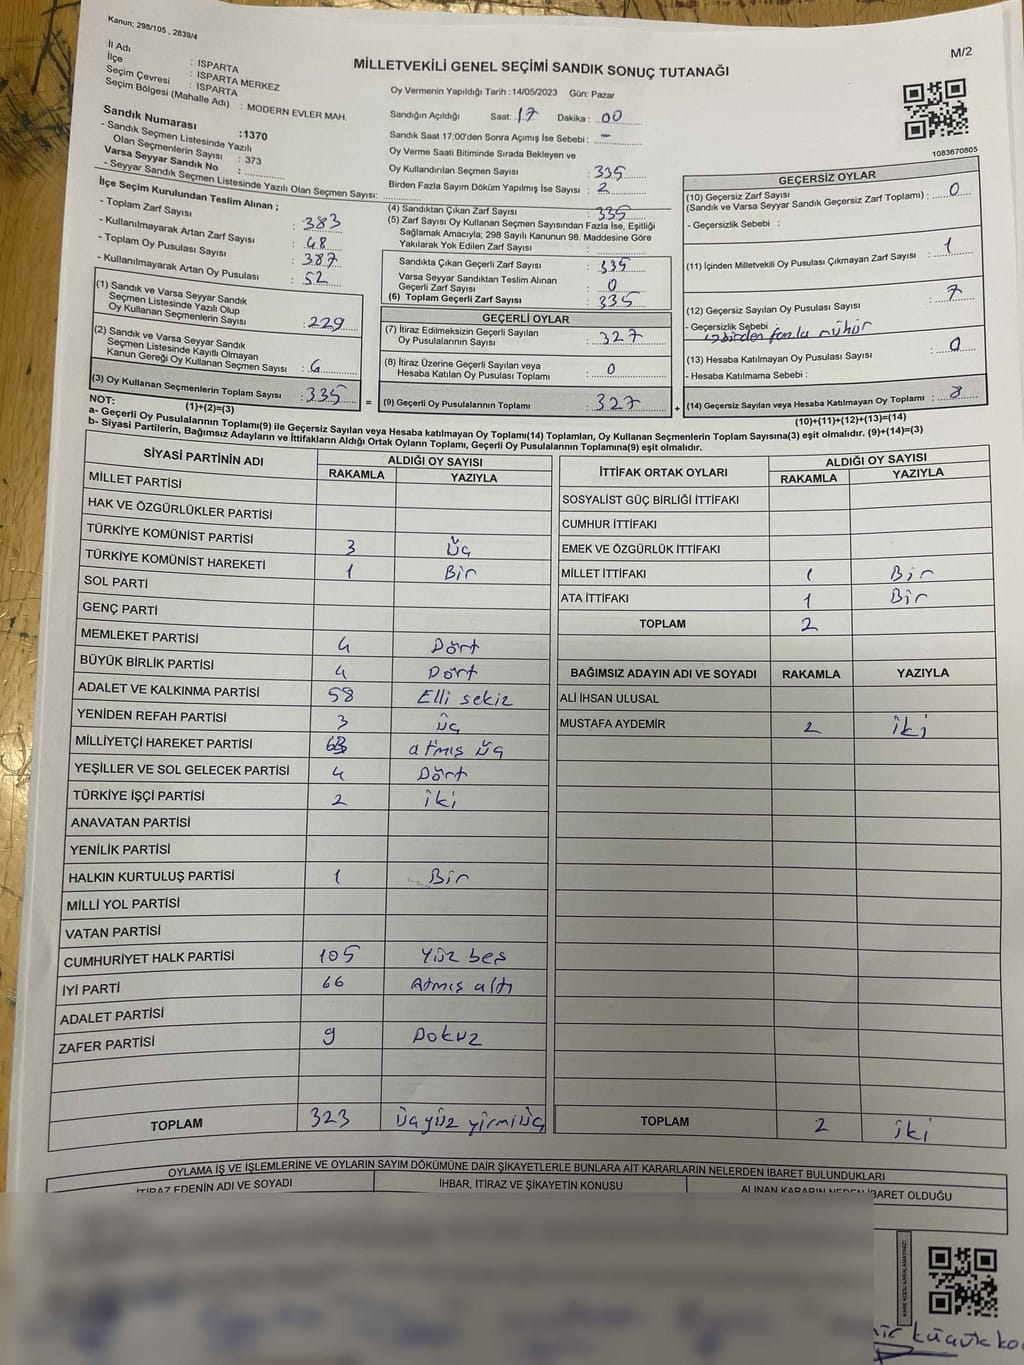 Kanun; 298/105 , 2839/4
M/2
İl Adı : ISPARTA
İlçe : ISPARTA MERKEZ
Seçim Çevresi : ISPARTA
Seçim Bölgesi (Mahalle Adı) : MODERN EVLER MAH.
MİLLETVEKİLİ GENEL SEÇİMİ SANDIK SONUÇ TUTANAĞI
Oy Vermenin Yapıldığı Tarih : 14/05/2023 Gün: Pazar
Sandık Numarası :1370
- Sandık Seçmen Listesinde Yazılı
Olan Seçmenlerin Sayısı : 373
Varsa Seyyar Sandık No :
- Seyyar Sandık Seçmen Listesinde Yazılı Olan Seçmen Sayısı:
Sandığın Açıldığı Saat: 17 Dakika : 00
Sandık Saat 17:00'den Sonra Açımış İse Sebebi : -
Oy Verme Saati Bitiminde Sırada Bekleyen ve
Oy Kullandırılan Seçmen Sayısı : 335
Birden Fazla Sayım Döküm Yapılmış İse Sayısı : 2
1083670805
İlçe Seçim Kurulundan Teslim Alınan ;
- Toplam Zarf Sayısı : 383
- Kullanılmayarak Artan Zarf Sayısı : 48
- Toplam Oy Pusulası Sayısı : 387
- Kullanılmayarak Artan Oy Pusulası : 52
(1) Sandık ve Varsa Seyyar Sandık
Seçmen Listesinde Yazılı Olup
Oy Kullanan Seçmenlerin Sayısı : 229
(2) Sandık ve Varsa Seyyar Sandık
Seçmen Listesinde Kayıtlı Olmayan
Kanun Gereği Oy Kullanan Seçmen Sayısı : 6
(3) Oy Kullanan Seçmenlerin Toplam Sayısı : 335
(1)+(2)=(3)
(4) Sandıktan Çıkan Zarf Sayısı : 335
(5) Zarf Sayısı Oy Kullanan Seçmen Sayısından Fazla İse, Eşitliği
Sağlamak Amacıyla; 298 Sayılı Kanunun 98. Maddesine Göre
Yakılarak Yok Edilen Zarf Sayısı :
Sandıkta Çıkan Geçerli Zarf Sayısı : 335
Varsa Seyyar Sandıktan Teslim Alınan
Geçerli Zarf Sayısı : 0
(6) Toplam Geçerli Zarf Sayısı : 335
GEÇERLİ OYLAR
(7) İtiraz Edilmeksizin Geçerli Sayılan
Oy Pusulalarının Sayısı : 327
(8) İtiraz Üzerine Geçerli Sayılan veya
Hesaba Katılan Oy Pusulası Toplamı : 0
= (9) Geçerli Oy Pusulalarının Toplamı : 327 +
GEÇERSİZ OYLAR
(10) Geçersiz Zarf Sayısı
(Sandık ve Varsa Seyyar Sandık Geçersiz Zarf Toplamı) : 0
- Geçersizlik Sebebi :
(11) İçinden Milletvekili Oy Pusulası Çıkmayan Zarf Sayısı : 1
(12) Geçersiz Sayılan Oy Pusulası Sayısı : 7
- Geçersizlik Sebebi : birden fazla mühür
(13) Hesaba Katılmayan Oy Pusulası Sayısı : 0
- Hesaba Katılmama Sebebi :
(14) Geçersiz Sayılan veya Hesaba Katılmayan Oy Toplamı : 8
(10)+(11)+(12)+(13)=(14)
NOT:
a- Geçerli Oy Pusulalarının Toplamı(9) ile Geçersiz Sayılan veya Hesaba Katılmayan Oy Toplamı(14) Toplamları, Oy Kullanan Seçmenlerin Toplam Sayısına(3) eşit olmalıdır. (9)+(14)=(3)
b- Siyasi Partilerin, Bağımsız Adayların ve İttifakların Aldığı Ortak Oyların Toplamı, Geçerli Oy Pusulalarının Toplamına(9) eşit olmalıdır.
SİYASİ PARTİNİN ADI ALDIĞI OY SAYISI
RAKAMLA YAZIYLA
MİLLET PARTİSİ
HAK VE ÖZGÜRLÜKLER PARTİSİ
TÜRKİYE KOMÜNİST PARTİSİ 3 Üç
TÜRKİYE KOMÜNİST HAREKETİ 1 Bir
SOL PARTİ
GENÇ PARTİ
MEMLEKET PARTİSİ 4 Dört
BÜYÜK BİRLİK PARTİSİ 4 Dört
ADALET VE KALKINMA PARTİSİ 58 Elli sekiz
YENİDEN REFAH PARTİSİ 3 üç
MİLLİYETÇİ HAREKET PARTİSİ 63 atmış üç
YEŞİLLER VE SOL GELECEK PARTİSİ 4 Dört
TÜRKİYE İŞÇİ PARTİSİ 2 iki
ANAVATAN PARTİSİ
YENİLİK PARTİSİ
HALKIN KURTULUŞ PARTİSİ 1 Bir
MİLLİ YOL PARTİSİ
VATAN PARTİSİ
CUMHURİYET HALK PARTİSİ 105 Yüz beş
İYİ PARTİ 66 Atmış altı
ADALET PARTİSİ
ZAFER PARTİSİ 9 Dokuz
TOPLAM 323 üçyüz yirmiüç
İTTİFAK ORTAK OYLARI ALDIĞI OY SAYISI
RAKAMLA YAZIYLA
SOSYALİST GÜÇ BİRLİĞİ İTTİFAKI
CUMHUR İTTİFAKI
EMEK VE ÖZGÜRLÜK İTTİFAKI
MİLLET İTTİFAKI 1 Bir
ATA İTTİFAKI 1 Bir
TOPLAM 2
BAĞIMSIZ ADAYIN ADI VE SOYADI RAKAMLA YAZIYLA
ALİ İHSAN ULUSAL
MUSTAFA AYDEMİR 2 iki
TOPLAM 2 iki
OYLAMA İŞ VE İŞLEMLERİNE VE OYLARIN SAYIM DÖKÜMÜNE DAİR ŞİKAYETLERLE BUNLARA AİT KARARLARIN NELERDEN İBARET BULUNDUKLARI
İTİRAZ EDENİN ADI VE SOYADI İHBAR, İTİRAZ VE ŞİKAYETİN KONUSU ALINAN KARARIN NEDEN İBARET OLDUĞU
KARE KODU KARALAMAYINIZ!